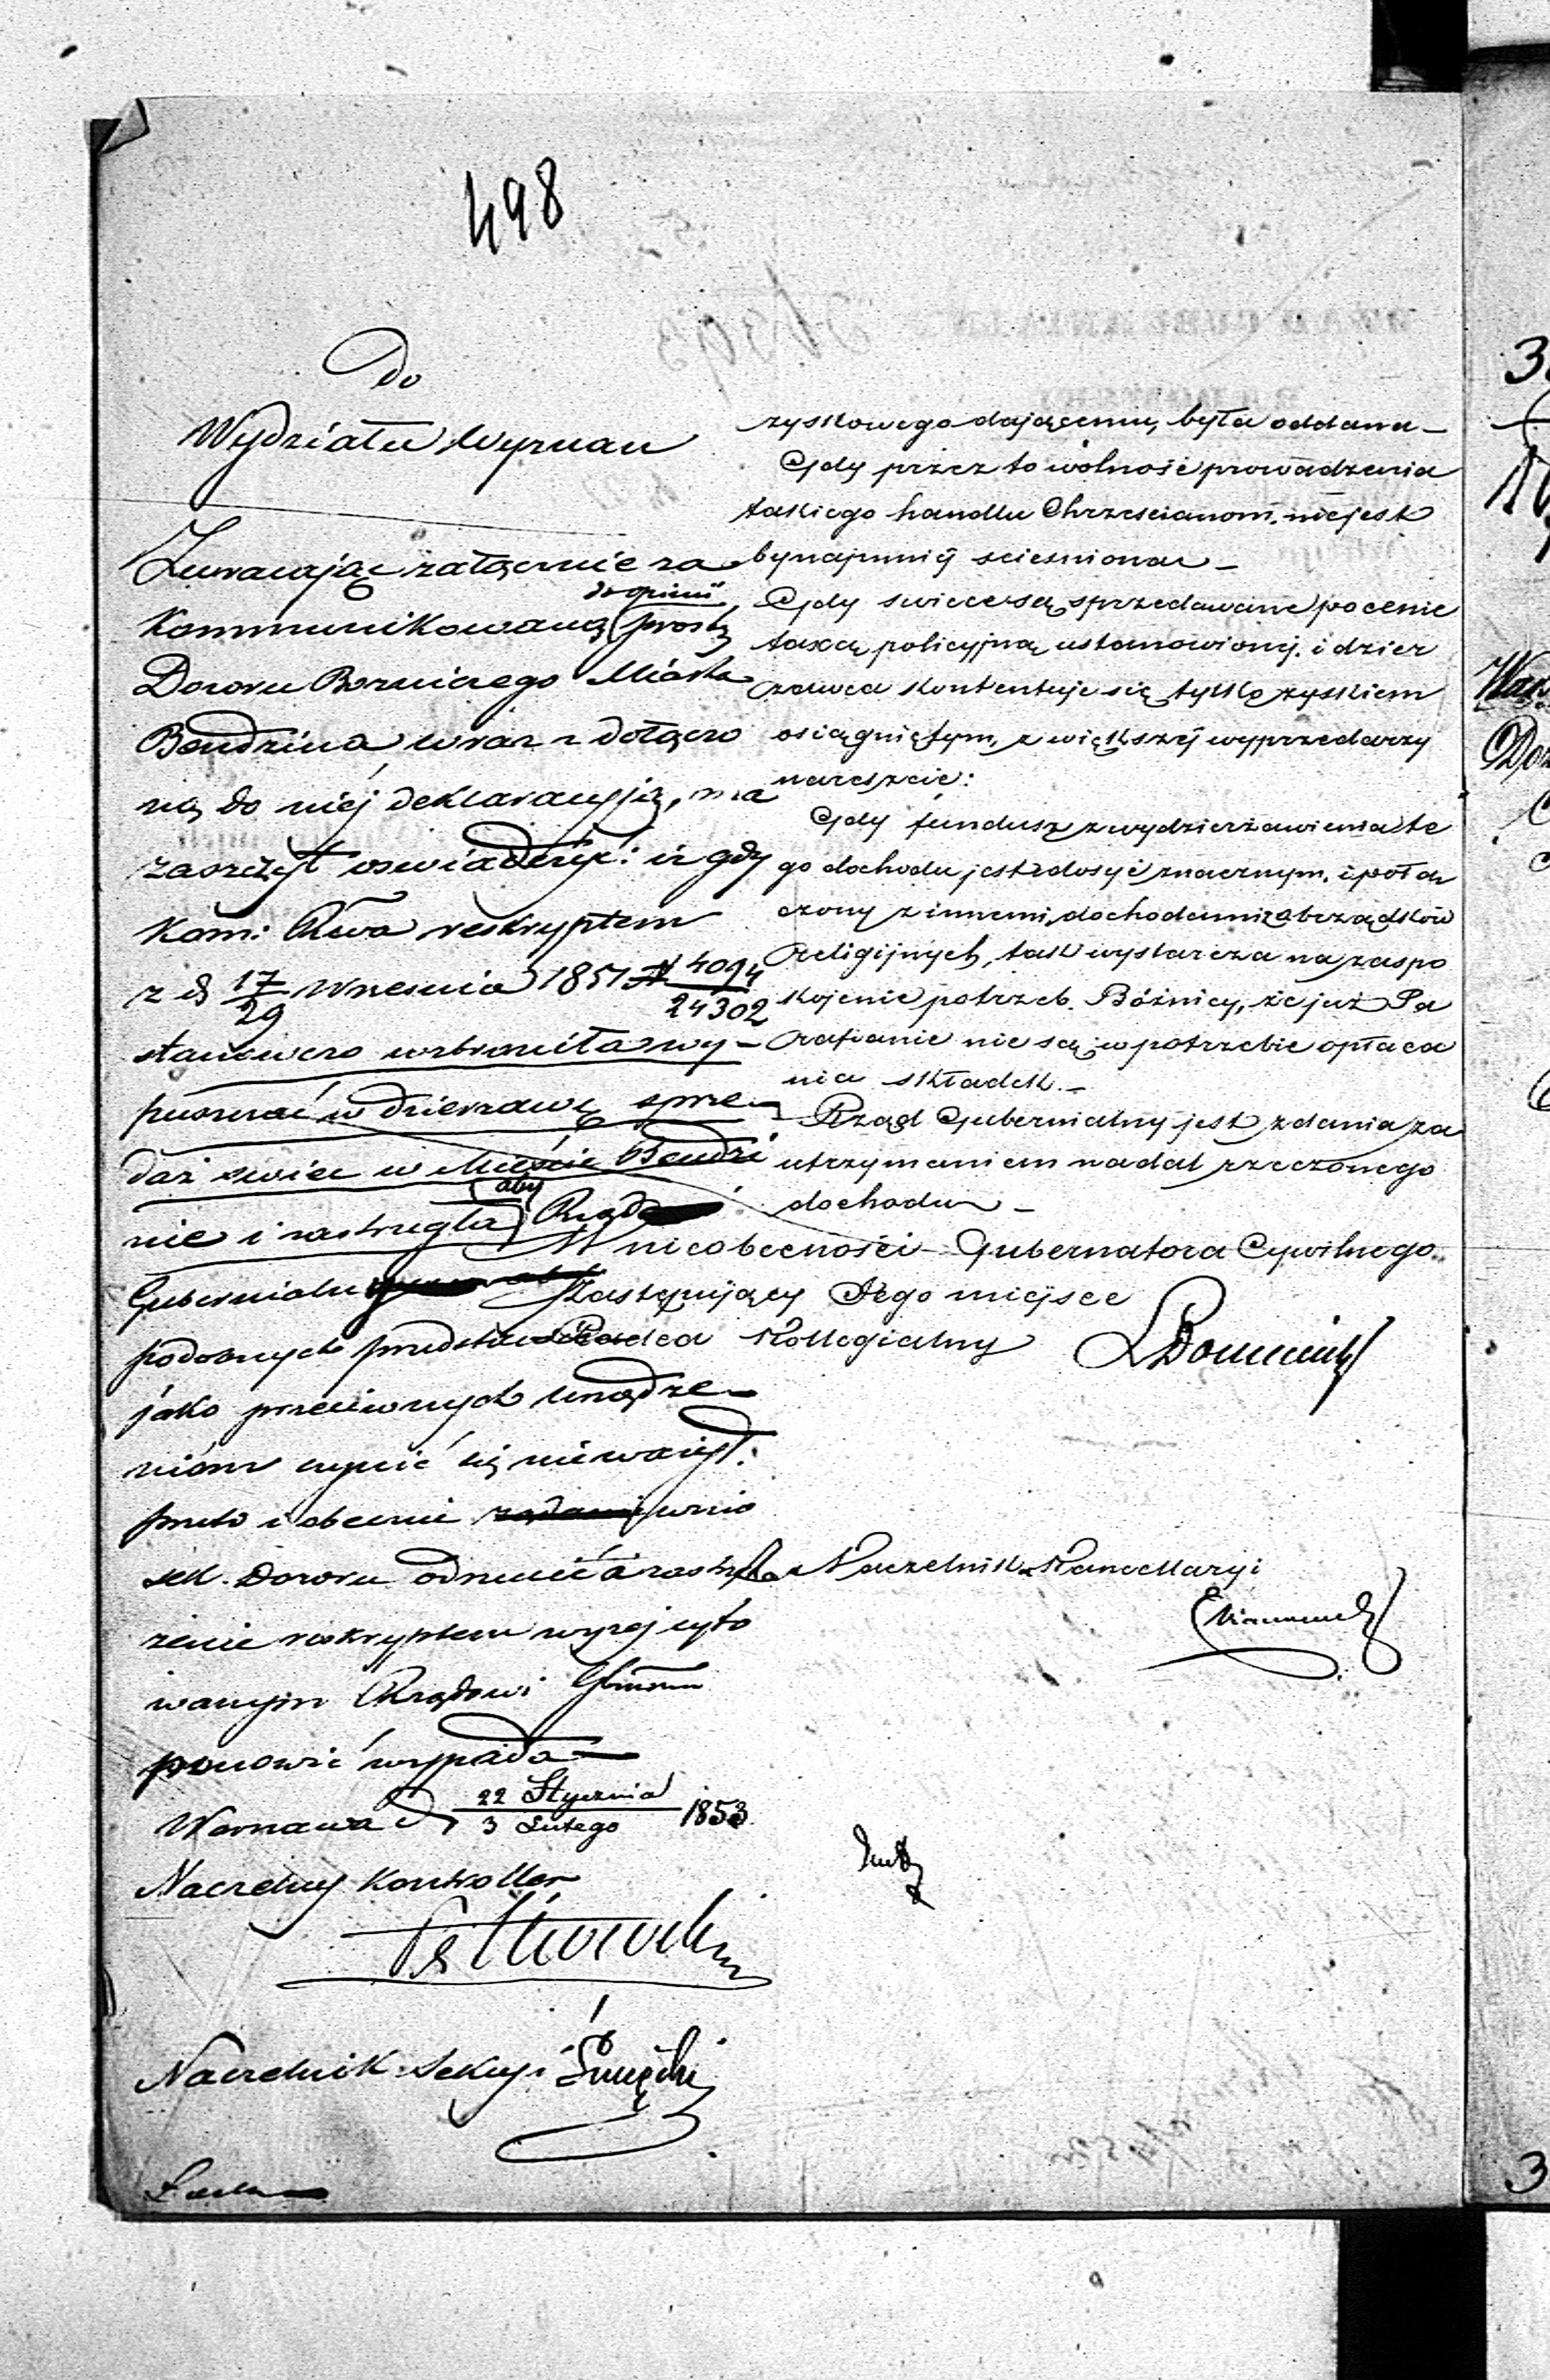 498
Do
Wydziału Wyznań
Zwracając załącznie za
do opinii
kommunikowaną prośbę
Dozoru Bozniczego Miasta
Bendzina wraz z dołączo
ną do niéj deklaracyją, ma
zaszczyt oswiadczyć: iż gdy
Kom: Rwa reskryptem
z d 17/29 Wrzesnia 1851 N 4094/24302
stanowczo wzbroniła wy-
puszczać w dzierzawę sprze-
daż swiec w Miescie Bendzi
nie i zastrzegła aby Rząd
Gubernialny
podobnych przedstawień
jako przeciwnych urządze-
niom czynić się nie ważył.
przeto i obecnie żądanie wnio
sek Dozoru odrzucić a zastrze
żenie reskryptem wyzej cyto
wanym Rządowi Gbmu
ponowić wypada
Warszawa d 22 Stycznia/3 Lutego 1853
Naczelny Kontroller
Naczelnik Sekcyi
zyskowego dającemu, była oddana _
Gdy przez to wolność prowadzenia
takiego handlu Chrzescianom, niejest
bynajmniéj sciesniona _
Gdy swiece są sprzedawane po cenie
taxą policyjną ustanowionéj, i dzier
zawca kontentuje się tylko zyskiem
osiągniętym, z większéj wyprzedarzy
nareszcie:
Gdy fundusz z wydzierżawienia te
go dochodu jest dosyć znacznym, i połą
czony z innemi, dochodami z obrządków
religijnych, tak wystarcza na zaspo
kojenie potrzeb Bóżnicy, że już Pa
rafianie nie są w potrzebie opłaca
nia składek. _
Rząd Gubernialny jest zdania za
utrzymaniem nadal rzeczonego
dochodu _
W nieobecności Gubernatora Cywilnego
Zastępujący Jego miejsce
Radca Kollegialny
Naczelnik Kancellaryi